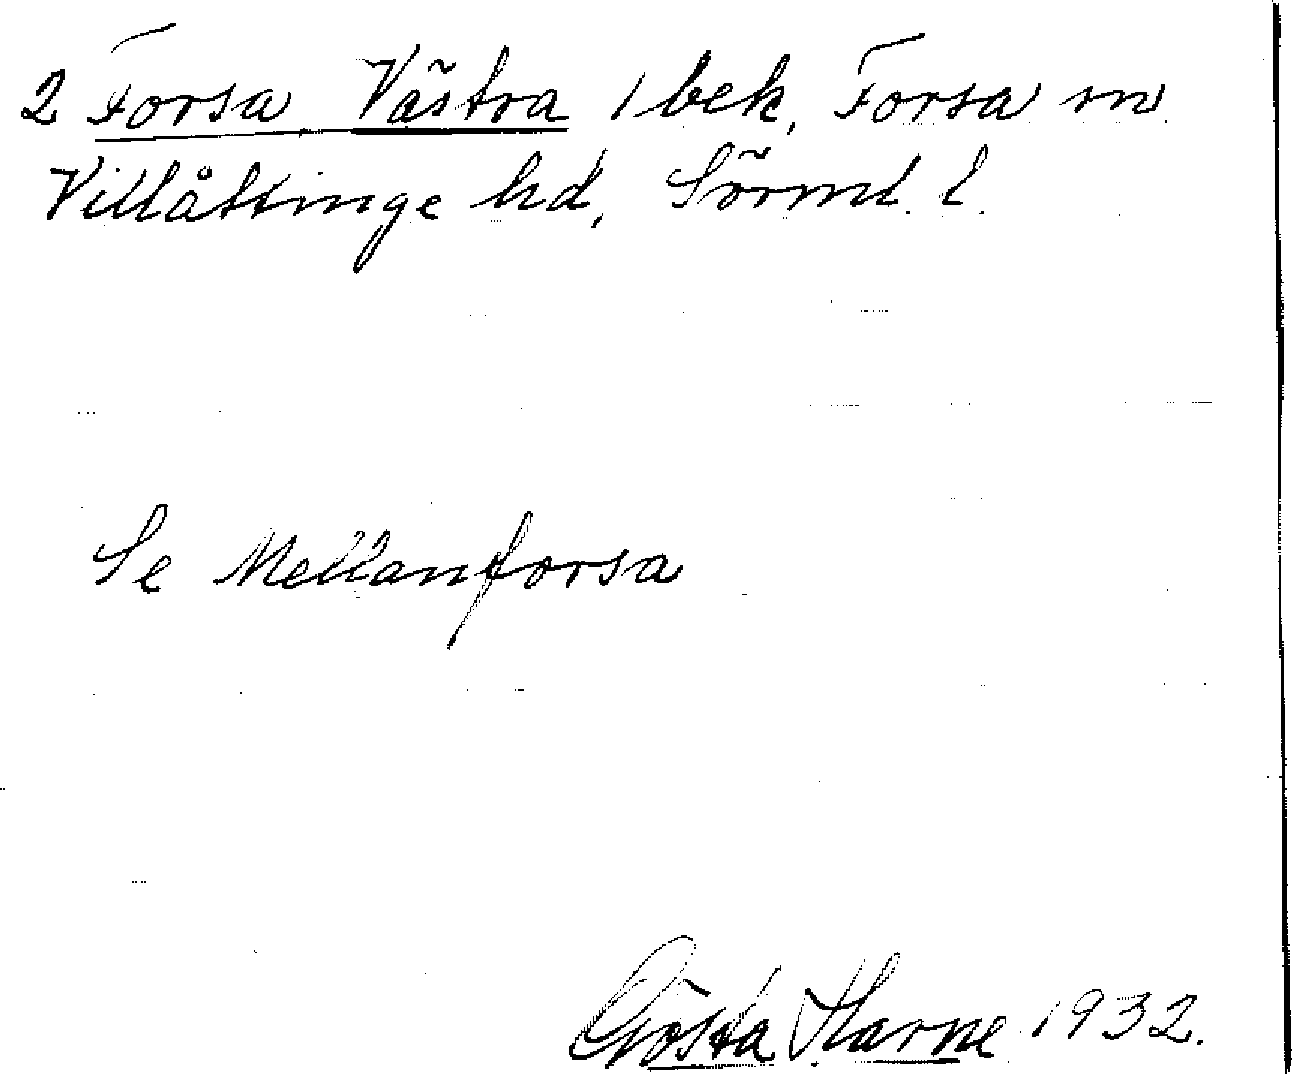 2 Forsa Västra 1 bek, Forsa sn
Villåttinge hd, Sörml. l.
Se Mellanforsa
Gösta Harne 1932.